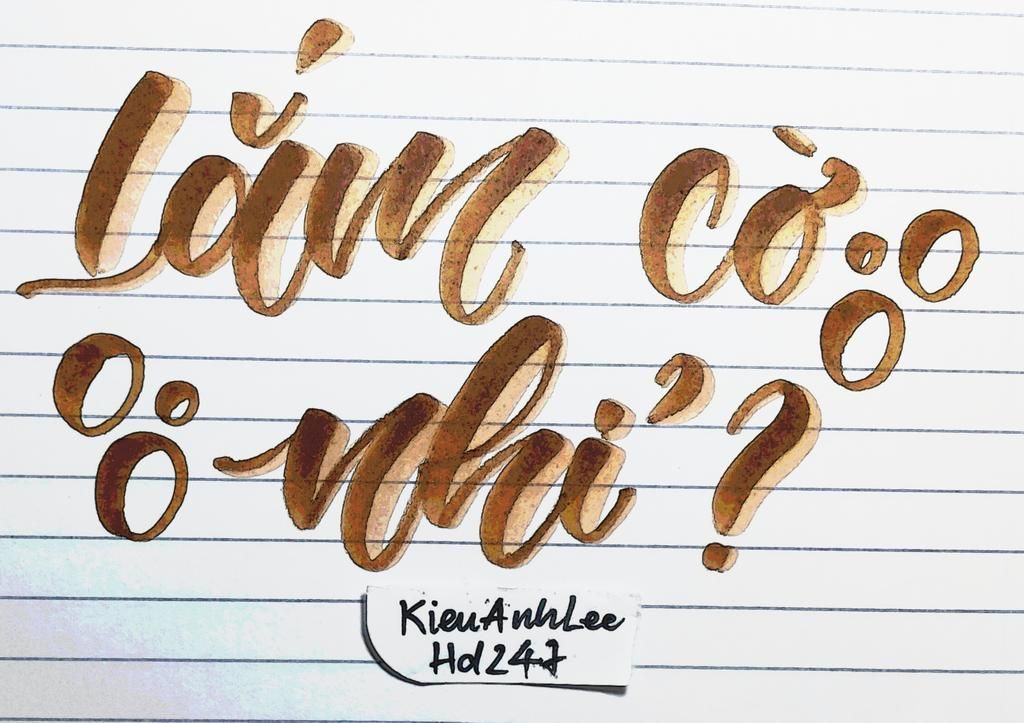 Lắm cờ
nhỉ?
KieuAnhLee
Hd247